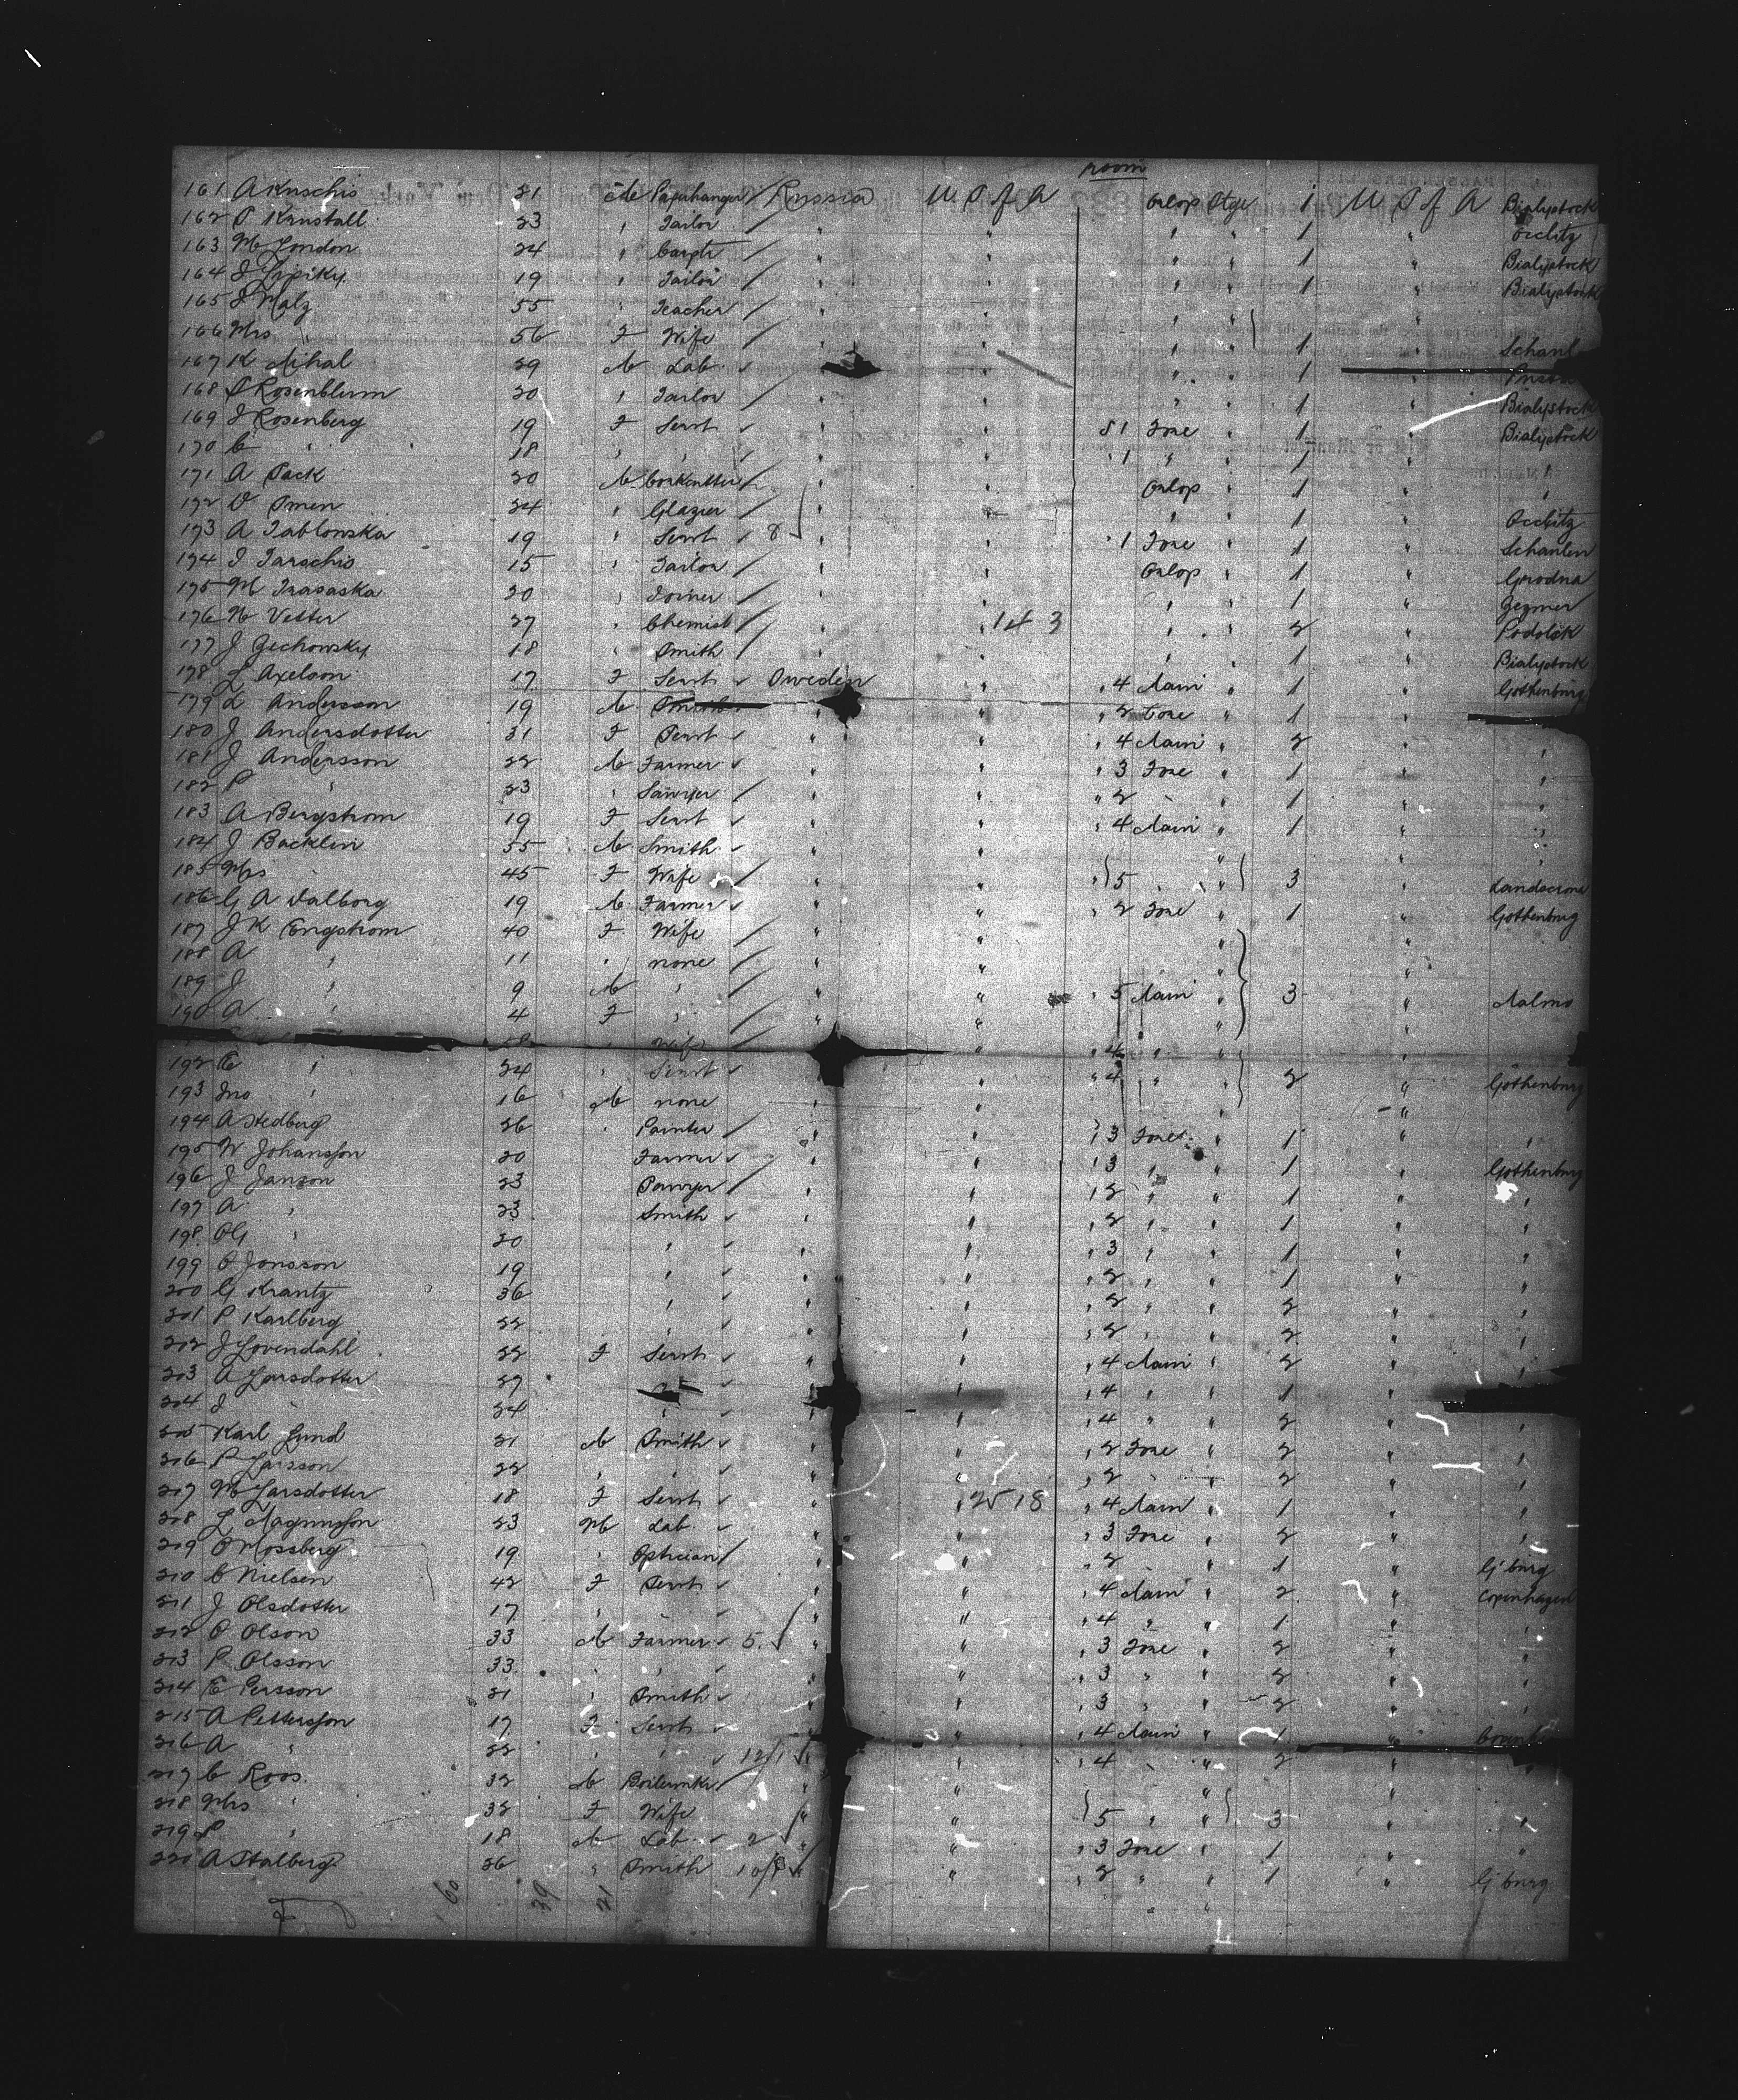 room
161 A Kuschis 21 M Paperhanger / Russia U S of A Orlop Stge 1 U S of A Bialystock
162 S Kunstall 23 " Tailor / " " " " 1 "
163 M London 24 " Carptr / " " " " 1 " Bialystock
164 J Lipsky 19 " Tailor / " " " " 1 " Bialystock
165 J Malz 55 " Teacher / " " " " "
166 Mrs " 56 F Wife / " " " " 1 "
167 K Mihal 29 M Lab " " " 1 "
168 S Rosenblum 20 " Tailor / " " " " 1 " Bialystock
169 J Rosenberg 19 F Servt " " 1 Fore " 1 " Bialystock
170 C " 18 " " " " 1 " " 1 " "
171 A Sack 20 M Corkcutter / " " Orlop " 1 " "
172 Omen 24 " Glazier / " " " " 1 "
173 A Jablonska 19 " Servt 8 " " 1 Fore " 1 " Schanlen
174 J Taraschis 15 " Tailor / " " Orlop " 1 " Grodna
175 M Trasaska 20 " Joiner / " " " " 1 "
176 N Vetter 27 " Chemist / " " 143 " " 2 " Podolsk
177 J Zechonsky 18 " Smith / " " " " 1 " Bialystock
178 L Axelson 17 F Servt Sweden " " 4 Main " 1 " Gothenburg
179 L Andersson 19 M Smith " " 2 Fore " 1 "
180 J Andersdotter 31 F Servt " " " 4 Main " 2 " "
181 J Andersson 22 M Farmer " " " 3 Fore " 1 " "
182 P " 23 " Sawyer / " " " 2 " 1 " "
183 A Bergstrom 19 F Servt " " " 4 Main " 1 " "
184 J Backlin 55 M Smith " " " " "
185 Mrs " 45 F Wife / " " 5 " " 3 " Landscrone
186 G A Dalborg 19 M Farmer " " " 2 Fore " 1 " Gothenburg
187 J K Engstrom 40 F Wife / " " " "
188 A " 11 " none / " " " "
189 J " 9 M " / " " " 5 Main " 3 " Malmo
190 A " 4 F " / " " " "
Wife " 4 " "
192 C " 24 " Servt " " 4 " " 2 " Gothenburg
193 Jno " 16 M none " " " "
194 A Hedberg 26 " Painter / " " " 3 Fore " 1 " "
195 W Johansson 20 Farmer " " " 3 " " 1 " Gothenburg
196 J Janson 23 Sawyer / " " " 2 " " 1 " "
197 A " 23 Smith " " " 2 " " 1 " "
198 " 20 " " " " 3 " " 1 " "
199 O Jonsson 19 " " " " 2 " " 1 " "
200 G Krantz 36 " " " " 2 " " 2 " "
201 P Karlberg 22 " " " " 2 " " 2 " "
202 J Lovendahl 22 F Servt " " " 4 Main " 2 " "
203 A Larsdotter 27 " " " 4 " " 1 "
204 J " 24 " " " " 4 " " 2 " "
205 Karl Lund 21 M Smith " " " 2 Fore " 2 " "
206 P Larsson 22 " " " " " 2 " " 2 " "
207 M Larsdotter 18 F Servt " " 2518 " 4 Main " 1 " "
208 L Magnusson 23 M Lab " " " 3 Fore " 2 " "
209 O Mossberg 19 " Optician / " " " 2 " " 1 " G'burg
210 C Nielsen 42 F Servt " " " 4 Main " 2 " Copenhagen
211 J Olsdotter 17 " " " " " 4 " " 1 " "
212 P Olson 33 M Farmer 5 " " " 3 Fore " 2 " "
213 P Olsson 33 " " " " " 3 " " 2 " "
214 E Persson 21 " Smith " " " 3 " " 2 " "
215 A Pettersson 17 F Servt " " " 4 Main " 1 "
216 A " 22 " " 12/1 " " " 4 " " 2 " "
217 C Roos 32 M Boilermkr / " " " "
218 Mrs " 32 F Wife " " 5 " " 3 " "
219 P " 18 M Lab 2 " " " 3 Fore " 1 " "
220 A Stalberg 26 " Smith " " " 2 " " 1 " G'burg
60 39 21